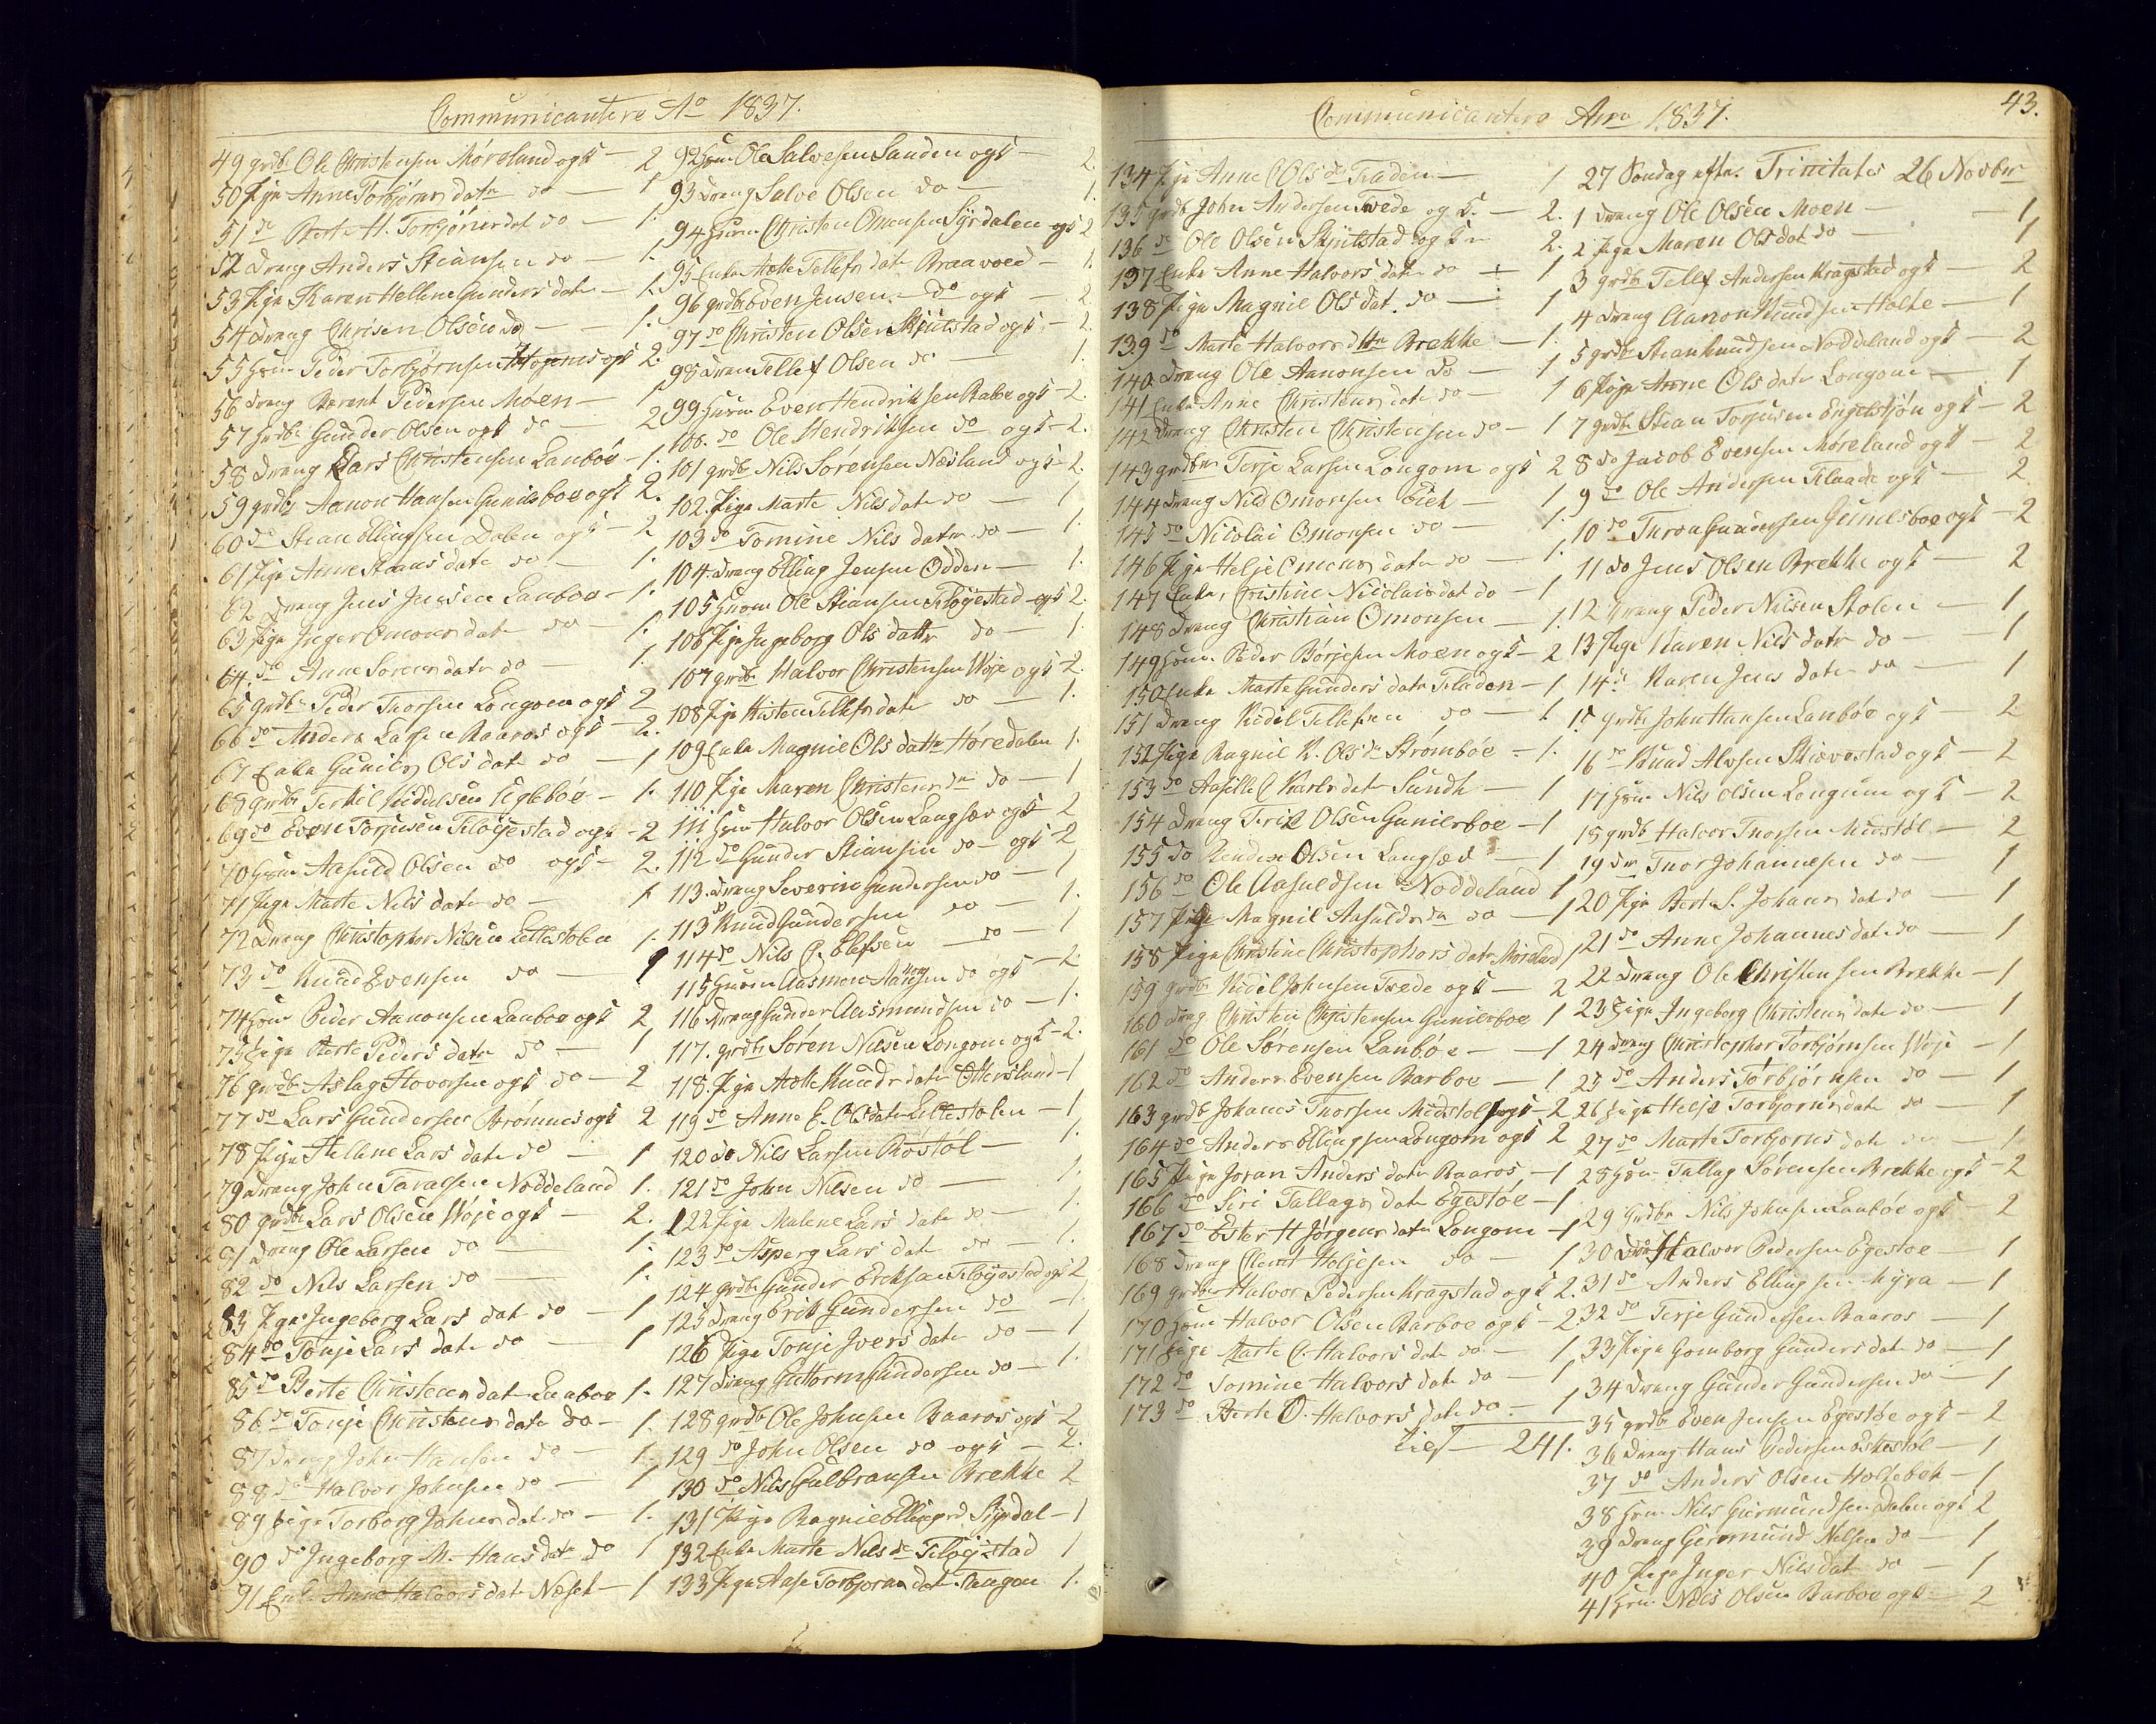 Communicantere Ao 1837.
49 grdbr Ole Christensen Møreland ogk — 2
50 Pige Anne Torbjørnsdatr do — 1
51 do Berte H. Torbjørnsdat do — 1.
52 Dreng Anders Stiansen do — 1.
53 Pige Karen Hellene Gundersdatr — 1.
54 Dreng Chrisen Olsen do — 1.
55 Huusm Peder Torbjørnsen ogk 2.
56 Dreng Berent Pedersen Moen — 1
57 grdbr Gunder Olsen ogk do — 2
58 Dreng Lars Christensen Lanboe — 1.
59 grdbr Aanon Hansen Gunilsboe ogk 2.
60 do Stean Ellingsen Dalen ogk — 2
61 Pige Anne Steansdatr do — 1.
62 Dreng Jens Jensen Lanboe — 1.
63 Pige Inger Omonsdatr do — 1.
64 do Anne Sørensdatr do — 1.
65 grdbr Peder Thorsen Longom ogk 2
66 do Anders Larsen Baaros ogk — 2.
67 Enke Gunild Olsdatr do — 1
68 grdbr Terkil Kiddelsen Ugleboe — 1.
69 do Even Torjusen Fløyestad ogk — 2
70 Husm Aasuld Olsen do ogk — 2.
71 Pige Marte Nilsdatr do — 1
72 Dreng Christopher Nilsen Lillestolen 1.
73 do Knud Evensen do — 1
74 Husm Peder Aanonsen Lanboe ogk 2
75 Pige Berte Pedersdatr do — 1
76 grdbr Aslag Hovorsen ogk do — 2
77 do Lars Gundersen Strømnes ogk 2
78 Pige Hellene Larsdatr do — 1
79 Dreng John Taraldsen Noddeland 1.
80 grdbr Lars Olsen Woje ogk — 2.
81 Dreng Ole Larsen do — 1.
82 do Nils Larsen do — 1.
83 Pige Ingeborg Larsdat do — 1
84 do Tonje Larsdatr do — 1
85 do Berte Christensdat Lanboe 1.
86 do Tonje Christensdatr do — 1.
87 Dreng John Hansen do — 1.
88 do Halvor Johnsen do — 1
89 Pige Torborg Johnsdat do — 1.
90 do Ingeborg M. Hansdatr do 1
91 Enke Anne Halvorsdat Neset — 1
92 Husm Ole Salvesen Sanden ogk — 2.
93 Dreng Salve Olsen do — 1.
94 Husm Christen Omonsen Syrdalen ogk 2
95 Enke Aette Tellefsdat Braavoed — 1.
96 grdbr Even Jensen do ogk — 2.
97 do Christen Olsen Skjulstad ogk — 2.
98 Dreng Tellef Olsen do — 1.
99 Husm Even Hendriksen Rabbe ogk — 2.
100. do Ole Hendriksen do ogk — 2.
101 grdbr Nils Sørensen Næsland ogk — 2.
102. Pige Marte Nilsdatr do — 1
103 do Tomine Nilsdatr do — 1.
104. Dreng Elling Jensen Odden — 1.
105 Husm Ole Steansen Fløyestad ogk 2.
106 Pige Ingeborg Olsdattr do — 1.
107 grdbr Halvor Christensen Woje ogk — 2.
108 Pige Kisten Tellefsdatr do — 1.
109 Enke Magnil Olsdattr Høredalen 1.
110 Pige Maren Christensdr do — 1
111 Husm Halvor Olsen Langsæv ogk — 2
112 do Gunder Steansen do — ogk — 2
113. Dreng Severin Gundersen do — 1
113 do Knud Gundersen do — 1.
114 do Nils G. Elefsen do — 1
115 Husm Aasmon Aanonsen do ogk — 2.
116 Dreng Gunder Aasmundsen do — 1.
117. grdbr Søren Nielsen Longom ogk — 2.
118. Pige Aette Knudsdatr Ottersland — 1
119 do Anne E. Olsdatr Lillestolen — 1
120 do Nils Larsen Røstøl — 1.
121 do John Nilsen do — 1.
122 Pige Malene Larsdatr do — 1.
123 do Asperg Larsdat do — 1.
124 grdbr Gunder Ericksen Fløyestad ogk 2
125 Dreng Erik Gundersen do — 1.
126 Pige Tonje Iversdatr do — 1
127 Dreng Guttorm Gundersen do — 1.
128 grdbr Ole Johnsen Baaros ogk — 2
129 do John Olsen do ogk — 2.
130 do Nils Gulbransen Brekke 2
131 Pige Ragnil Ellingsd Syrdal — 1
132 Enke Marte Nilsdr Fløyestad 1
133 Pige Aase Torbjørnsdat Tangen 1.
Communicantere Anno 1837.
43.
134 Pige Anne C Olsdr Fladen — 1
135 grdb John Andersen Twede ogk. — 2.
136 do Ole Olsen Skjulstad ogk — 2.
137 Enke Anne Halvorsdatr do — 1
138 Pige Magnil Olsdat. do — 1
139 do Marte Halvorsdttr Brekke — 1.
140 Dreng Ole Aanonsen do — 1
141 Enke Anne Christensdatr do — 1
142 Dreng Christen Christensen do — 1
143 grdbr Terje Larsen Longom ogk 2
144 Dreng Nils Omonsen Eieh — 1
145 do Nicolai Omonsen do — 1.
146 Pige Helje Omonsdatr do — 1.
147 Enke Cristine Nicolaisdat do — 1
148 Dreng Christian Omonsen — 1.
149 Husm Peder Børjesen Moen ogk — 2
150 Enke Marte Gundersdatr Fladen — 1
151 Dreng Kidel Tellefsen do — 1.
152 Pige Ragnil K. Olsdr Strømboe — 1.
153 do Aasille C Karlsdatr Sundh — 1
154 Dreng Terik Olsen Gunilsboe — 1
155 do Rendese Olsen Langsæd — 1
156 do Ole Aasuldsen Noddeland 1
157 Pige Magnil Aasuldsdr do — 1
158 Pige Christine Christophersdatr Møreland 1
159 grdbr Kidel Johnsen Twede ogk — 2
160 Dreng Christen Christensen Gunilsboe 1
161 do Ole Sørensen Lanbóe — 1
162 do Anders Evensen Barboe — 1.
163 grdb Johanes Thorsen Midstøl ogk — 2
164 do Anders Ellingsen Longom ogk 2
165 Pige Joran Andersdatr Baaros — 1
166 do Siri Tallagsdatr Egestóe — 1
167 do Ester H Jørgensdatr Longom — 1
168 Dreng Clemet Holjesen do — 1
169 grdbr Halvor Pedersen Kragstad ogk 2.
170 Husm Halvor Olsen Barboe ogk — 2
171 Pige Marte C. Halvorsdatr do — 1
172 do Tomine Halvorsdatr do — 1
173 do Berte O. Halvorsdatr do — 1
241.
27 Søndag efter Trinitatis 26 Novbr
1 Dreng Ole Olsen Moen — 1
2 Pige Maren Olsdat do — 1
3 grdbr Tellef Andersen Kragstad ogk — 2
4 Dreng Aanon Knudsen Holte — 1
5 grdbr Stean Knudsen Noddeland ogk — 2
6 Pige Anne Olsdatr Longom — 1
7 grdbr Stean Torjusen Engelstjøn ogk — 2
8 do Jacob Evensen Møreland ogk — 2
9 do Ole Andersen Flaade ogk — 2.
10 do Thron Gundersen Gunilsboe ogk — 2
11 do Jens Olsen Brekke ogk — 2
12 Dreng Peder Nilsen Stolen — 1
13 Pige Karen Nilsdatr do — 1
14 do Karen Jensdatr do — 1
15 grdbr John Hansen Lanbóe ogk — 2
16 do Knud Alvsen Skiævestad ogk — 2
17 Husm Nils Olsen Longum ogk — 2
18 grdb Halvor Thorsen Midstøl — 2
19 Dr Thor Johannesen do — 1
20 Pige Berte S. Johansdat do — 1
21 do Anne Johannesdat do — 1
22 Dreng Ole Christensen Brekke — 1
23 Pige Ingeborg Christensdatr do — 1
24 Dreng Christopher Torbjørnsen Woje — 1
25 do Anders Torbjørnsen do — 1
26 Pige Helje Torbjørnsdatr do 1
27 do Marte Torbjørnsdatr do — 1
28 Husm Tallag Sørensen Brekke ogk — 2
29 Grdbr Nils Johnsen Lanboe ogk — 2
30 Dreng Halvor Pedersen Egestoe 1
31 do Anders Ellingsen Myra — 1
32 do Terje Gundersen Baaros — 1
33 Pige Gomborg Gundersdatr do — 1
34 Dreng Gunder Gundersen do — 1
35 grdbr Even Jensen Egestoe ogk — 2
36 Dreng Hans Pedersen Eskestøl — 1
37 do Anders Olsen Holtebek — 1
38 Husm Nils Gurmundsen Dalen ogk 2
39 Dreng Germund Nilsen do 1
40 Pige Inger Nilsdat do — 1
41 Husm Niels Olsen Barboe ogk — 2